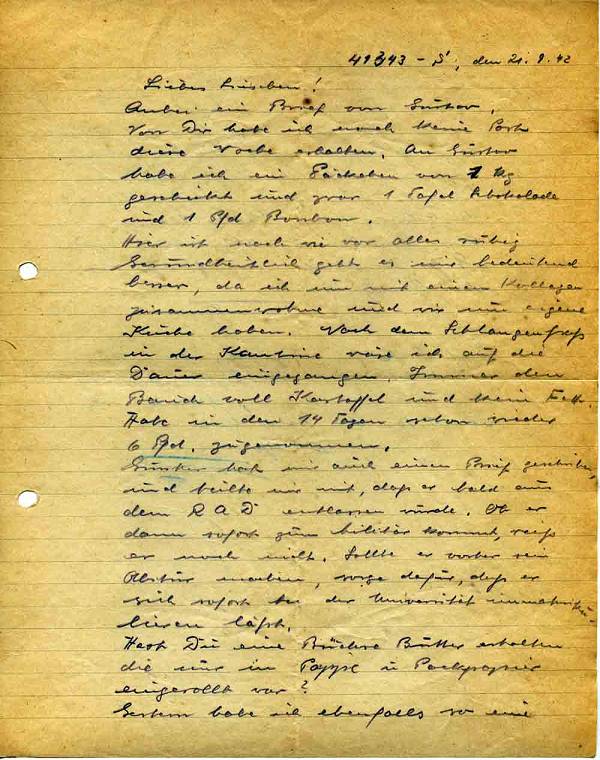 41343 - S, den 21. 9. 42
Liebes Lieschen!
Anbei ein Brief von Gustav.
Von Dir habe ich noch keine Post
diese Woche erhalten. An Gustav
habe ich ein Päckchen von 1 kg
geschickt und zwar 1 Tafel Schokolade
und 1 Pfd Bonbon.
Hier ist nach wie vor alles ruhig
Gesundheitlich geht es mir bedeutend
besser, da ich nun mit einem Kollegen
zusammenwohne und wir eine eigene
Küche haben. Nach dem Schlangenfraß
in der Kantine wäre ich auf die
Dauer eingegangen. Immer den
Bauch voll Kartoffel und kein Fett.
Habe in den 14 Tagen schon wieder
6 Pfd. zugenommen.
hat mir auch einen Brief geschrieben,
und teilte mir mit, daß er bald aus
dem RAD entlassen würde. Ob er
dann sofort zum Militär kommt, weiß
er noch nicht. Sollte er vorher sein
Abitur machen, sorge dafür, daß er
sich sofort der Universität immatriku-
lieren läßt.
Hast Du eine Büchse Butter erhalten
die nur in Pappe u Packpapier
eingerollt war?
Gestern habe ich ebenfalls so eine